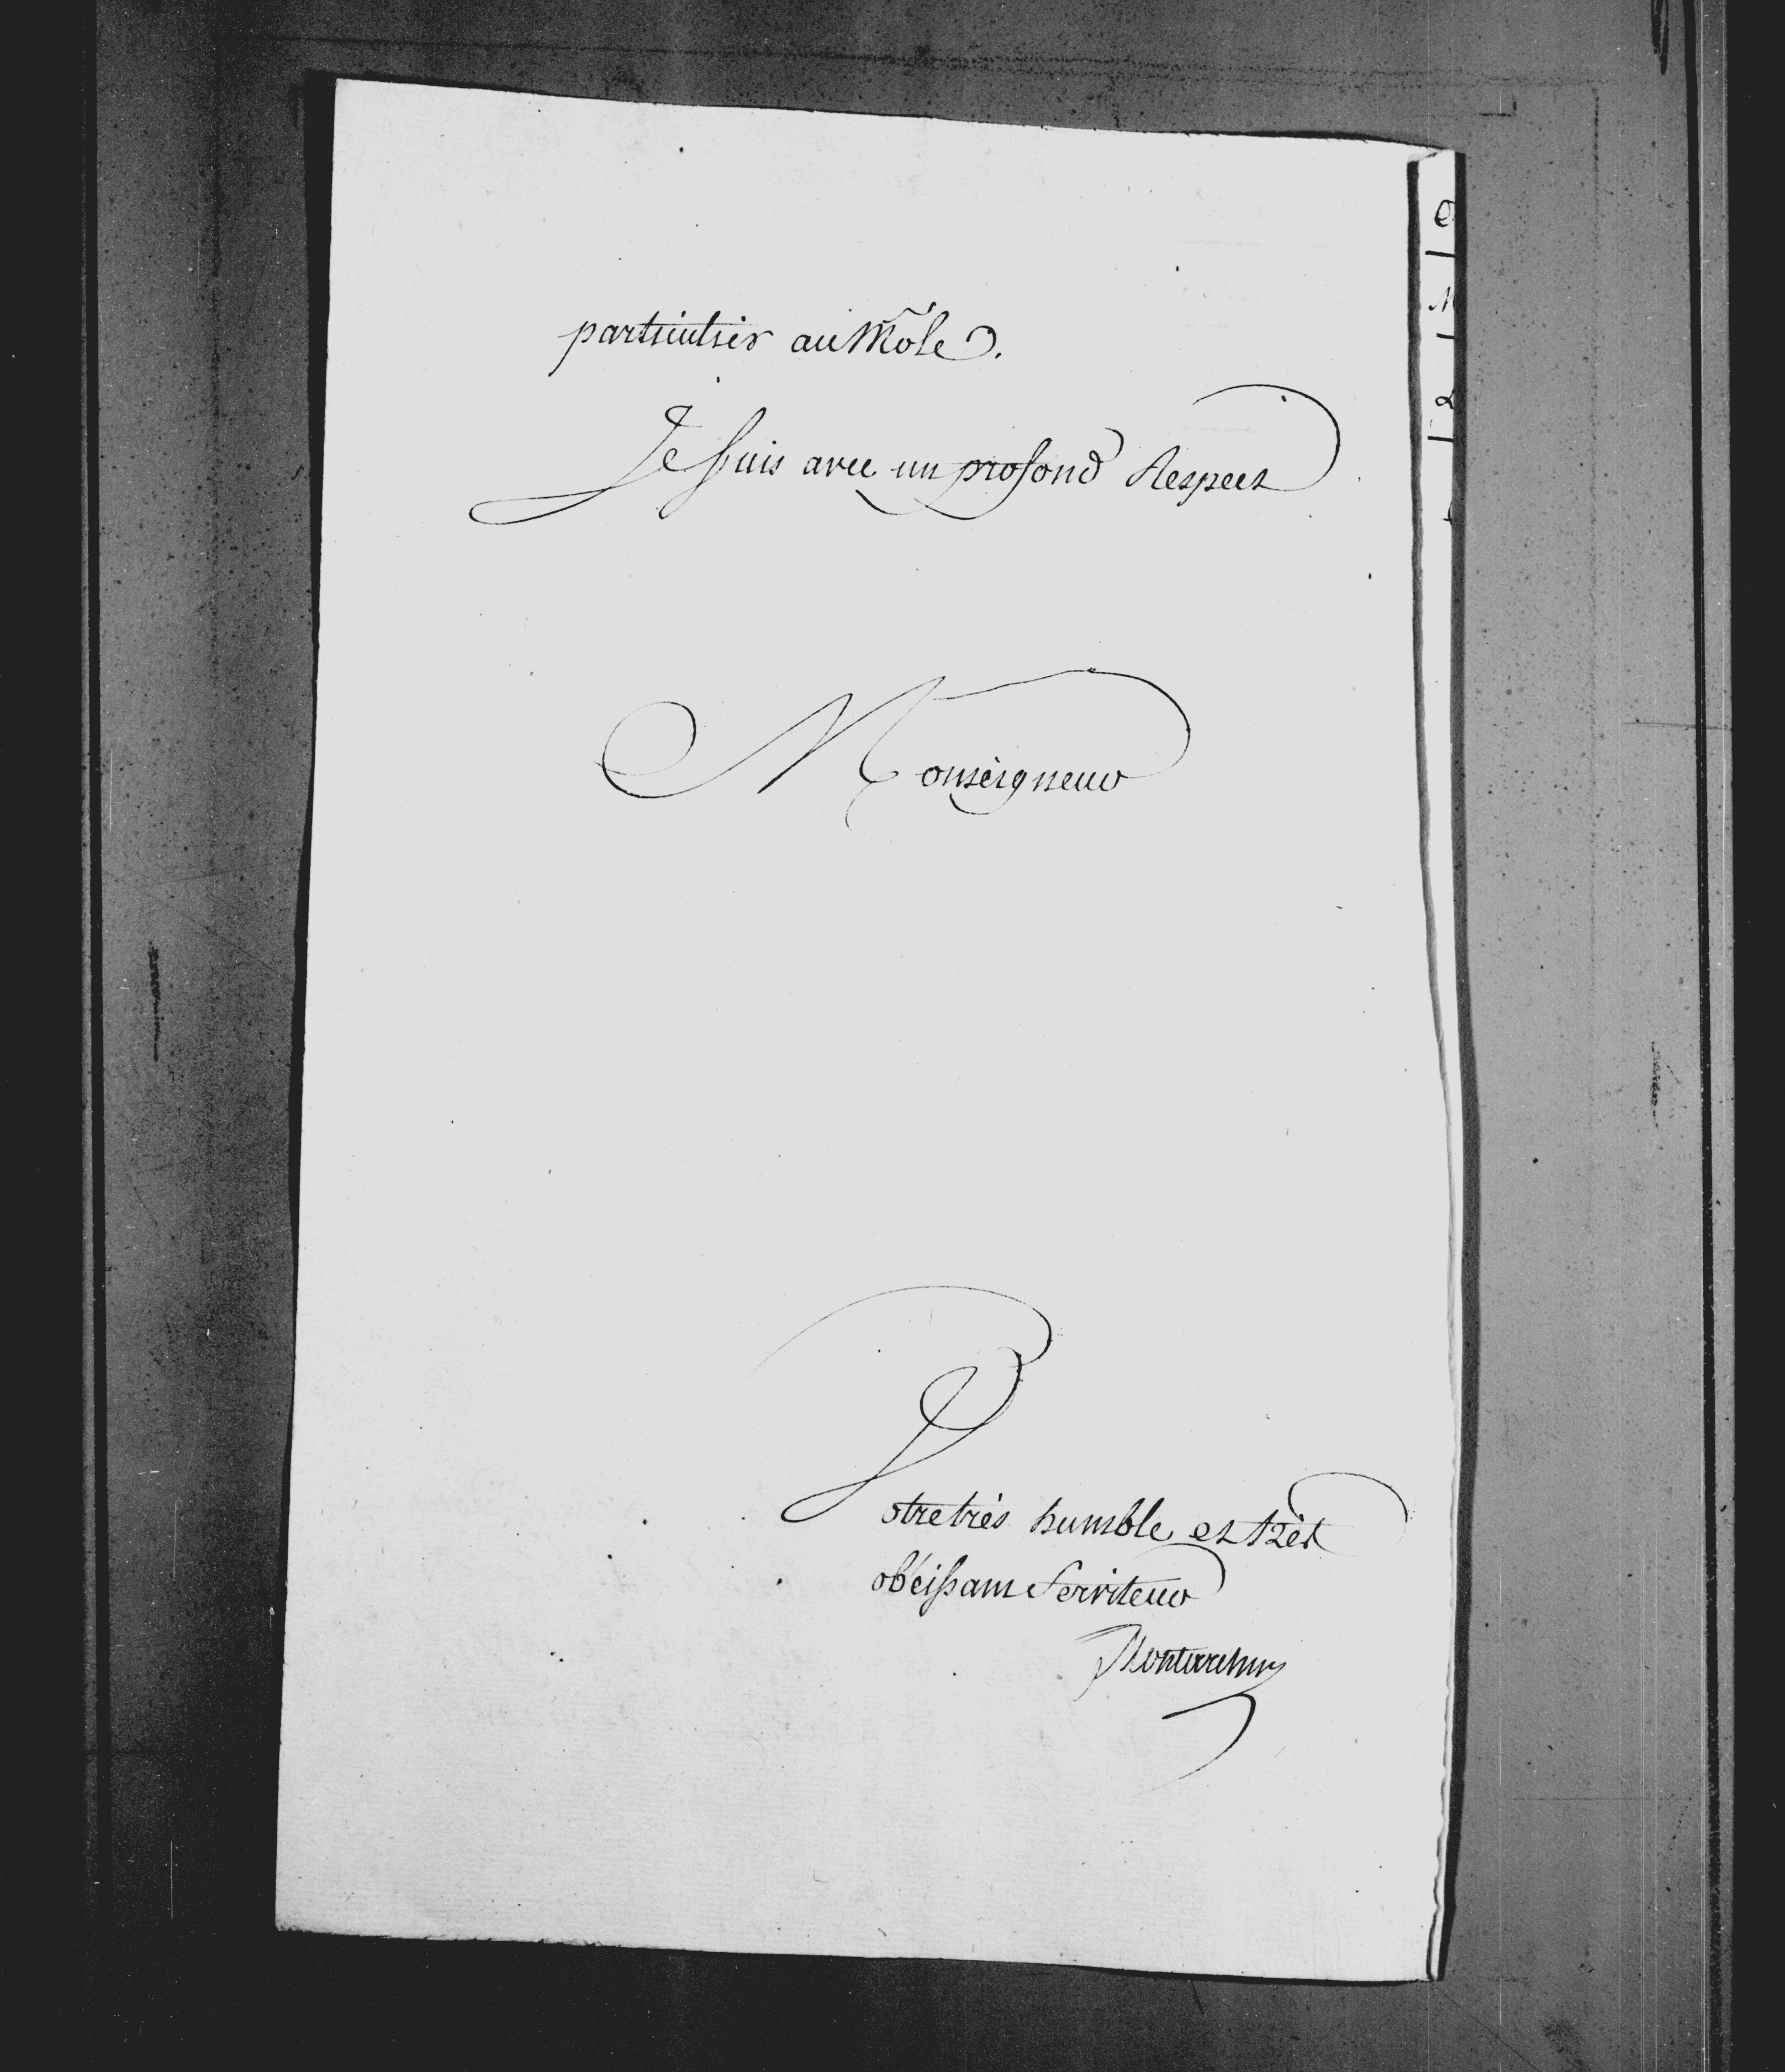 particulier au Môle.
Je suis avec un profond Respect
Monseigneur
Votre très humble et très
obéissant Serviteur